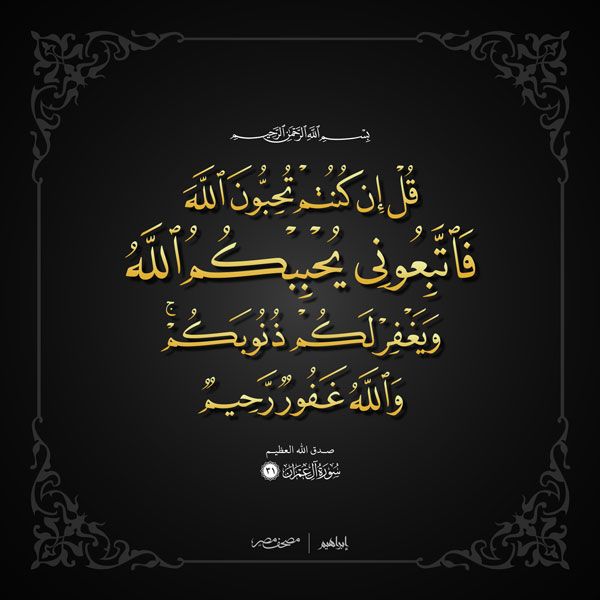 بِسْمِ ٱللَّهِ ٱلرَّحْمَٰنِ ٱلرَّحِيمِ
قُلْ إِن كُنتُمْ تُحِبُّونَ ٱللَّهَ
فَٱتَّبِعُونِى يُحْبِبْكُمُ ٱللَّهُ
وَيَغْفِرْ لَكُمْ ذُنُوبَكُمْ ۚ
وَٱللَّهُ غَفُورٌ رَّحِيمٌ
صدق الله العظيم
سُورَةُ آلِ عِمْرَان ٣١
إبراهيم | مصحف مصر